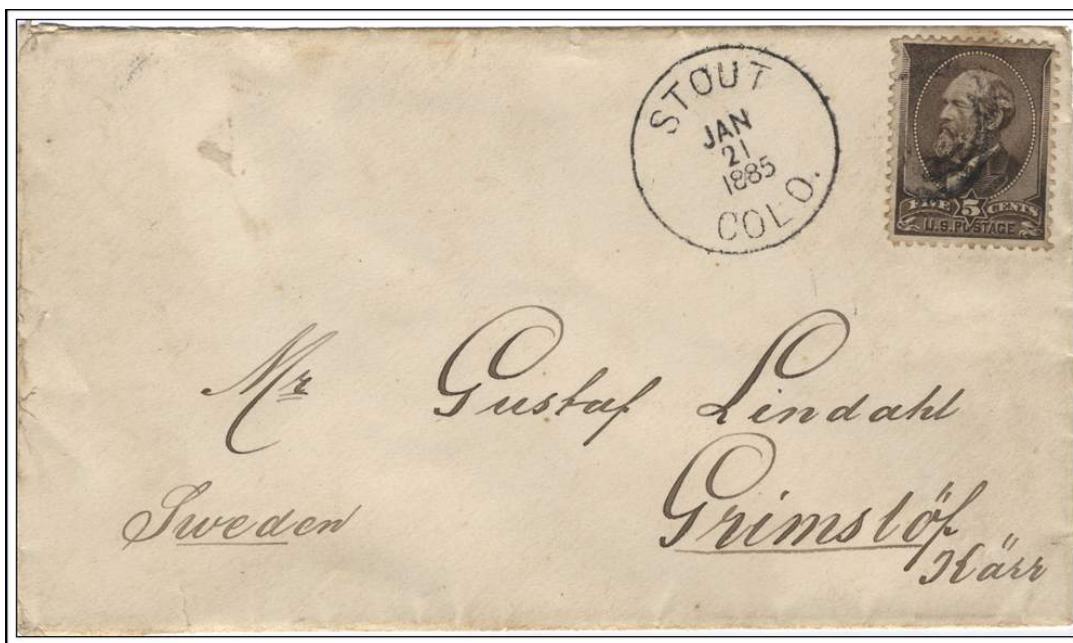 STOUT
JAN
21
1885
COLO.
FIVE 5 CENTS
U.S. POSTAGE
Mr Gustaf Lindahl
Grimslöf
Sweden
Kärr